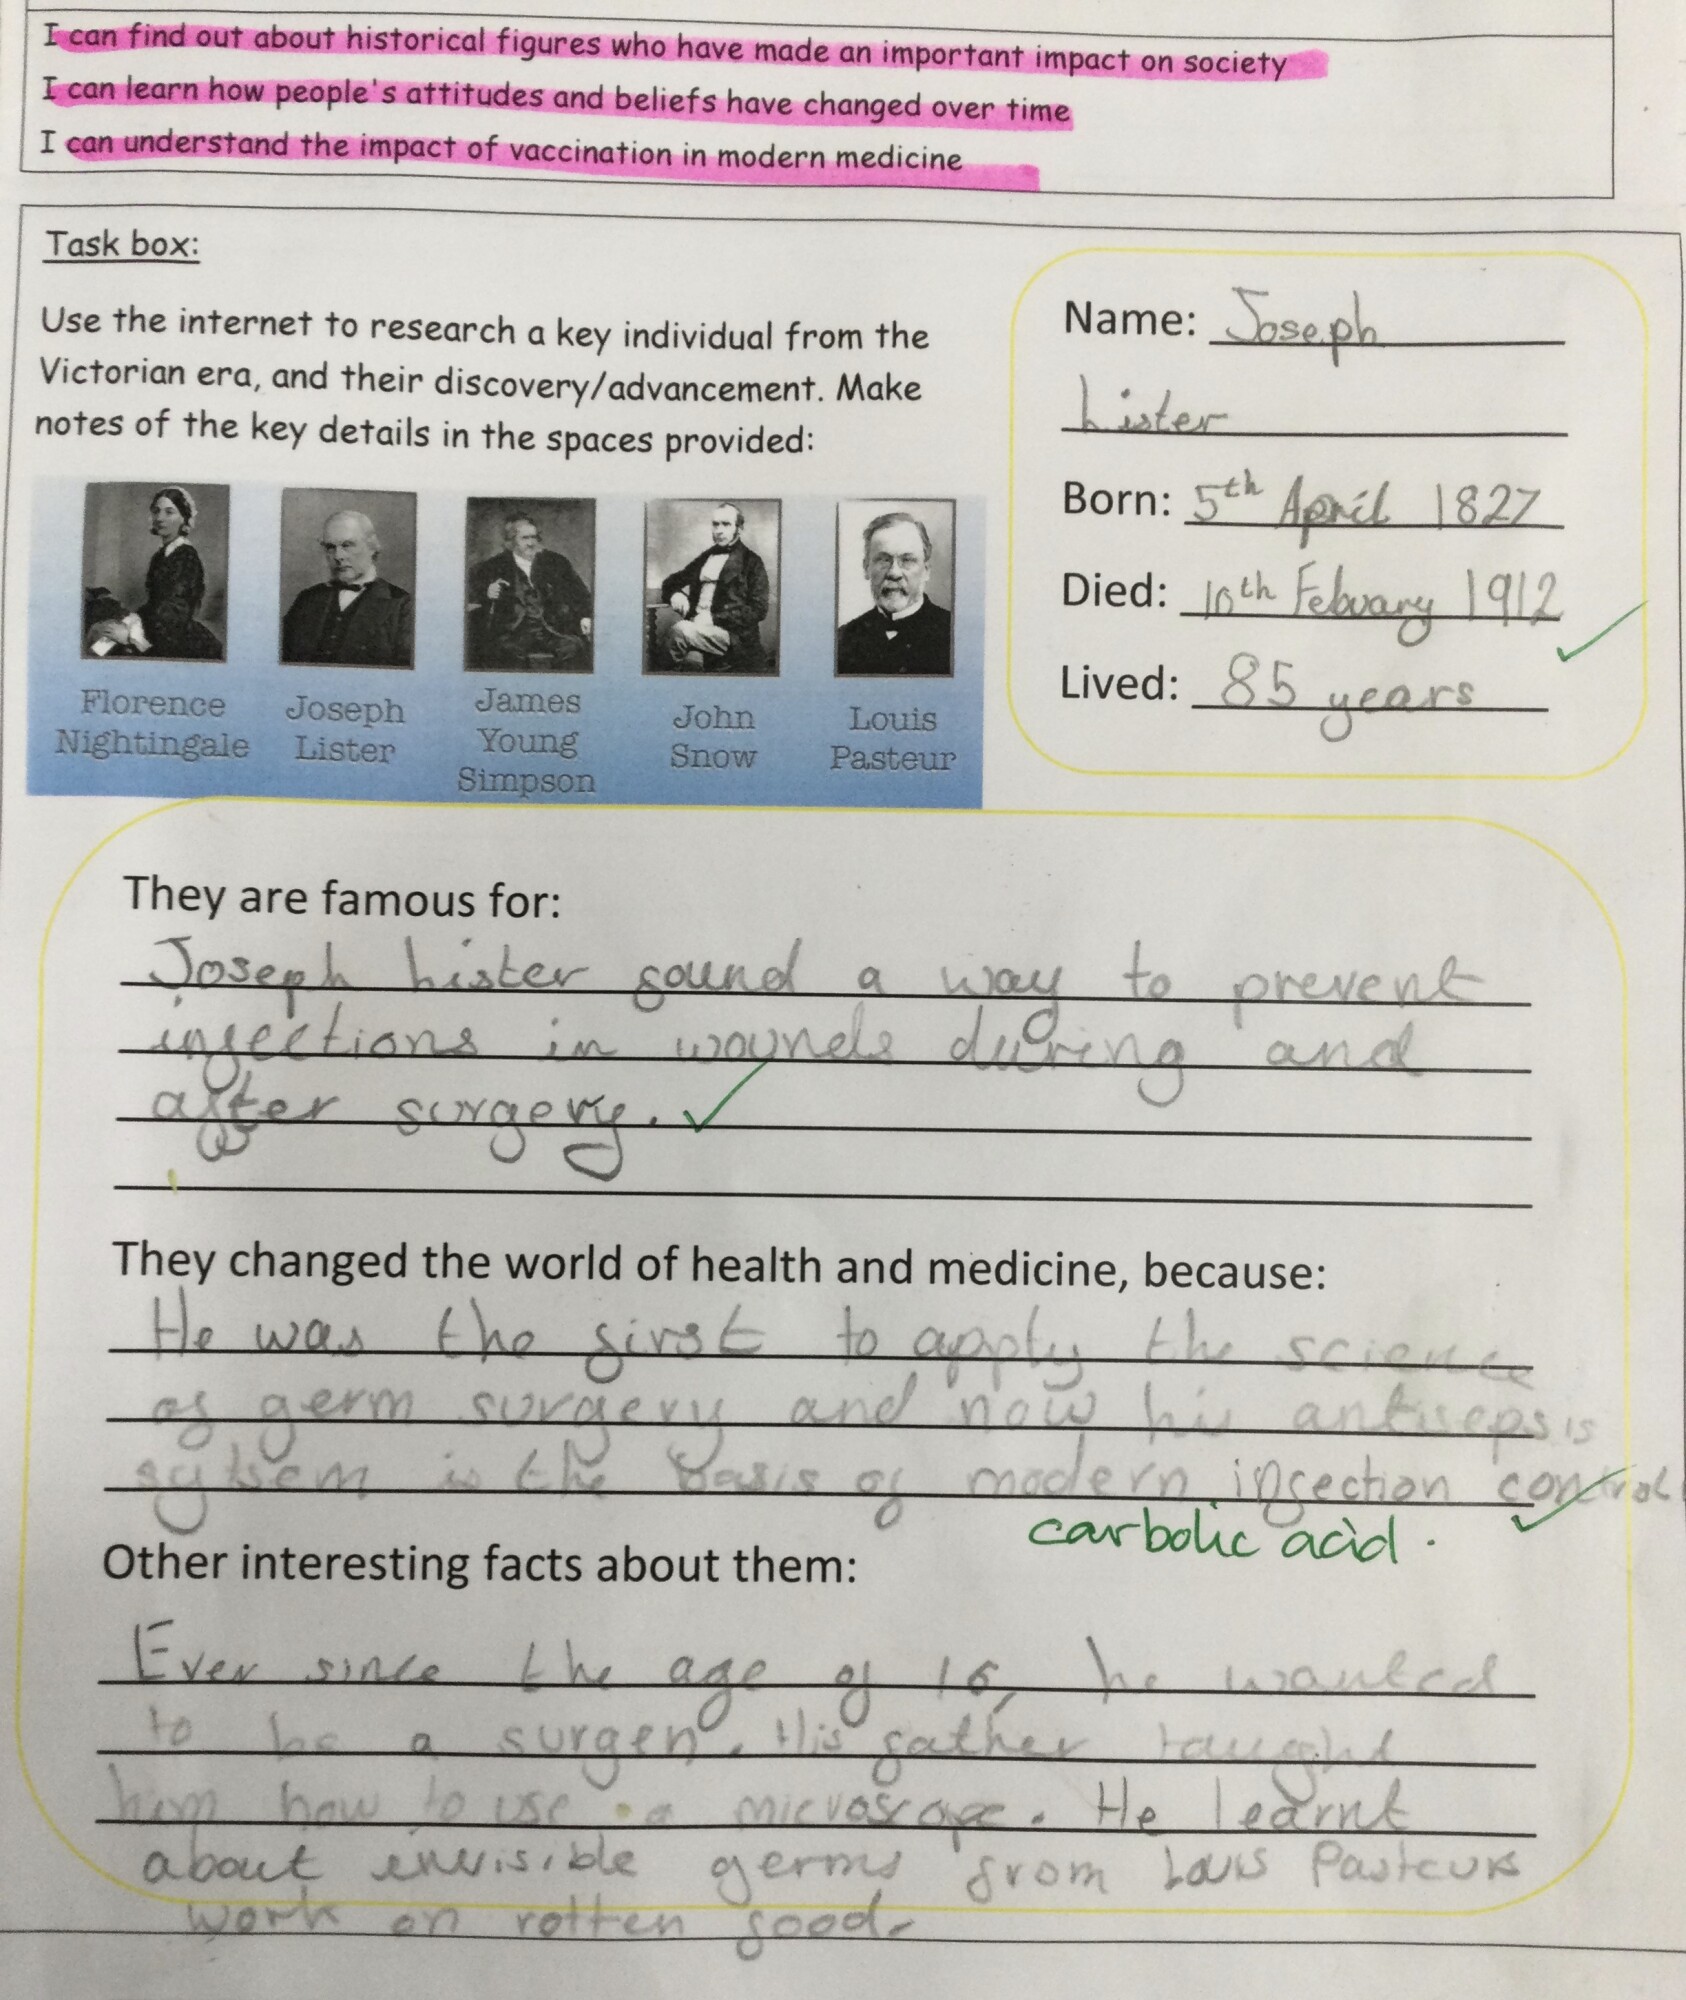 I can find out about historical figures who have made an important impact on society
I can learn how people's attitudes and beliefs have changed over time
I can understand the impact of vaccination in modern medicine
Task box:
Use the internet to research a key individual from the
Victorian era, and their discovery/advancement. Make
notes of the key details in the spaces provided:
Florence Nightingale
Joseph Lister
James Young Simpson
John Snow
Louis Pasteur
Name: Joseph
Lister
Born: 5th April 1827
Died: 10th Febuary 1912
Lived: 85 years
They are famous for:
Joseph Lister found a way to prevent
infections in wounds during and
after surgery.
They changed the world of health and medicine, because:
He was the first to apply the science
of germ surgery and now his antisepsis
sytsem is the basis of modern infection control
carbolic acid.
Other interesting facts about them:
Ever since the age of 16, he wanted
to be a surgen. His father taught
him how to use a microscope. He learnt
about invisible germs from Louis Pasteurs
work on rotten food.